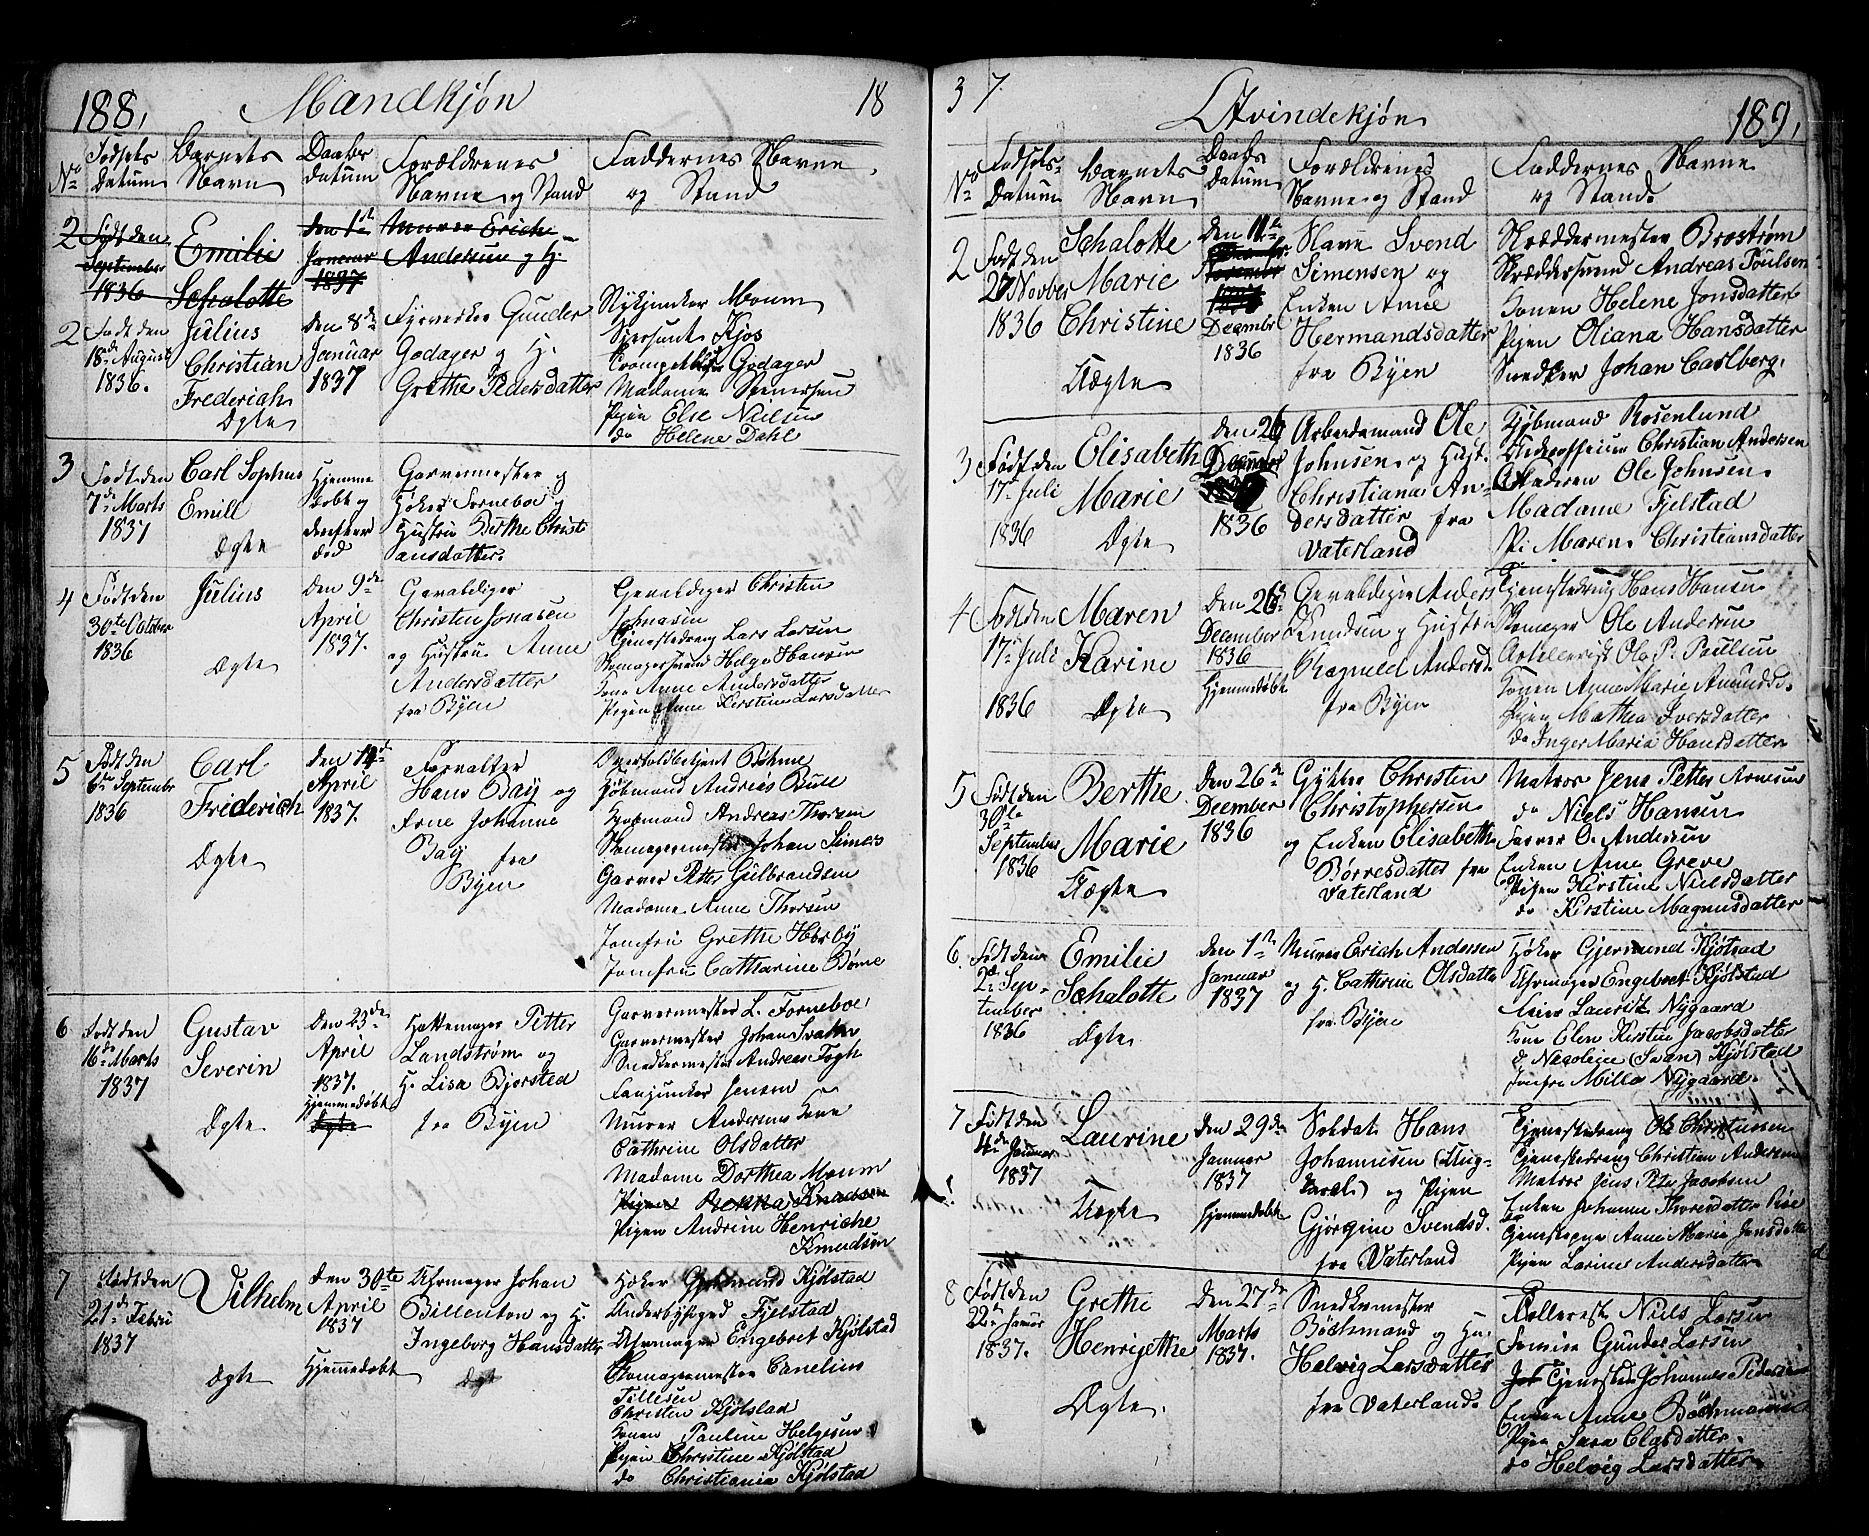 188, Mandkjøn 18
No Fødsels Datum Barnets Navn Daabs Datum Forældrenes Navne og Stand Faddernes Navne og Stand
2 Født den September 1836
Emilie Schalotte
den 1st Januar 1837
Murer Erich Andersen og H.
2 Født den 18de August 1836.
Julius
Christian
Frederich
Ægte
den 8de
Januar
1837
Fyrverker Gunder
Godager og H.
Grethe Pedersdatter
Stykjunker Moum
Sersant Kjos
Godager
Madame Stenersen
Pigen Else Nielsen
do Helene Dahl
3 Født den
7de Marts
1837
Carl Sophus
Emill
Ægte
Hjemme
døbt og
derefter
død
Garvermester og
Høker Forneboe og
Hustru Berthe Christi
ansdatter.
4 Født den
30te October
1836
Julius
Ægte
den 9de
April
1837.
Gevaldiger
Christen Jonasen
og Hustru Anne
Andersdatter
fra Byen
Gevaldiger Christen
Johnasen
Tjenestedreng Lars Larsen
Skomagersvend Helge Hansen
Kone Anne Andersdatter
Pigen Anne Kirstine Larsdatter
5 Født den
6te September
1836
Carl
Friderich
Ægte
den 14de
April
1837.
Forvalter
Hans Bay og
Frue Johanne
Bay fra
Byen
Overtoldbetjent Bøhme
Kjøbmand Andreas Bull
Kjøbmand Andreas Thorsen
Skomagermester Johan Simers
Garver Petter Gulbrandsen
Madame Anne Thorsen
Jomfru Grethe Horbÿ
Jomfru Catharine Bøme
6 Født den
16de Marts
1837
Gustav
Severin
Ægte
den 23de
April
1837.
Hjemmedøbt
Ægte
Hattemager Petter
Landstrøm og
H. Lisa Bjorsted
fra Byen
Garvermester L. Forneboe
Garvermester Johan
Snedkermester Andreas Fogh
Fanejunker Jensen
Murer Andersens Kone
Cathrine Olsdatter
Madame Dorthea Moum
Pigen Knudsen
Pigen Andrine Henriche
Knudsen
7 Født den
21de Febru
1837
Vilhelm
Ægte
den 30te
April
1837
Hjemmedøbt
Uhrmager Johan
Billenton og H.
Ingeborg Hansdatter
Ægte
Høker Gjermund Kjølstad
Underbyfoged Fjelstad
Uhrmager Engebret Kjølstad
Skomagermester Cornelius
Tillesen
Christen Kjølstad
Konen Pauline Helgesen
Pigen Christine Kjølstad
do Christiania Kjølstad
37. Qvindekjøn 189,
No Fødsels Datum Barnets Navn Daabs Datum Forældrenes Navne og Stand Faddernes Navne og Stand
2 Født den
27 Novber
1836
Schalotte
Marie
Christine
Uægte
den 11te
November
Decembr
1836
Svend
Simensen og
Enken Anne
Hermandsdatter
fra Byen
Skræddermester Brostrøm
Skræddersvend Andreas Poulsen
Konen Helene Jonsdatter
Pigen Oliana Hansdatter
Snedker Johan Carlberg.
3 Født den
17de Juli
1836
Elisabeth
Marie
Ægte
den 26
December
1836
Arbeidsmand Ole
Johnsen og Hust.
Christiana An-
dersdatter fra
Vaterland
Kjøbmand Rosenlund
Underofficier Christian Andersen
Faderen Ole Johnsen.
Madame Fjelstad
Pi Maren Christiansdatter
4 Født den
17de Juli
1836
Maren
Karine
Ægte
den 26de
December
1836
Hjemmedøbt
Gevaldiger Anders
Knudsen og Hustru
Ragnild Andersd.
fra Byen
Tjenestedreng Hans Hansen
Skomager Ole Andersen
Artillerist Ole P. Paulsen
Konen Anne Marie Amundsd.
Pigen Mathea Iversdatter
do Inger Maria Hansdatter
5 Født den
30te
September
1836
Berthe
Marie
Uægte
den 26de
December
1836
Christen
Christophersen
og Enken Elisabeth
Børresdatter fra
Vaterland
Matros Jens Petter Arnesen
do Niels Hansen
Farver O. Andersen
Enken Anne Greve
Pigen Kirstine Nielsdatter
do Kirstine Magnusdatter
6. Født den
2de Sep-
tember
1836
Emilie
Schalotte
Ægte
den 1ste
Januar
1837
Murer Erich Andersen
og H. Cathrine Olsdatter
fra Byen
Høker Gjermund Kjølstad
Uhrmager Engebret Kjølstad
Laurits Nygaard
Kone Elen Kirstin Jacobsdatter
Nicoleia (Svan) Kjølstad
Jomfru Milla Nygaard.
7 Født den
4de Januar
1837
Laurine
Uægte
den 29de
Januar
1837
Hjemmedøbt
Soldat Hans
Johannesen (Ung-
karl) og Pigen
Gjørgine Svendsd.
fra Vaterland
Tjenestedreng Ole Christensen
Tjenestedreng Christian Andersen
Matros Jens Peter Jacobsen
Enken Johanne Thoresdatter
Tjenestepige Anne Maria Jensdatter
Pigen Larine Andersdatter
8 Født den
22de Januar
1837.
Grethe
Henrigethe
Ægte.
den 27de
Marts
1837.
Snedkermester
Bochmand og Hu.
Helvig Larsdatter
fra Vaterland.
Niels Larsen
Gunder Larsen
Tjenesten Johannes Pedersen
Enken Anne Bochmand
Pigen Sara Clasdatter.
do Helvig Larsdatter